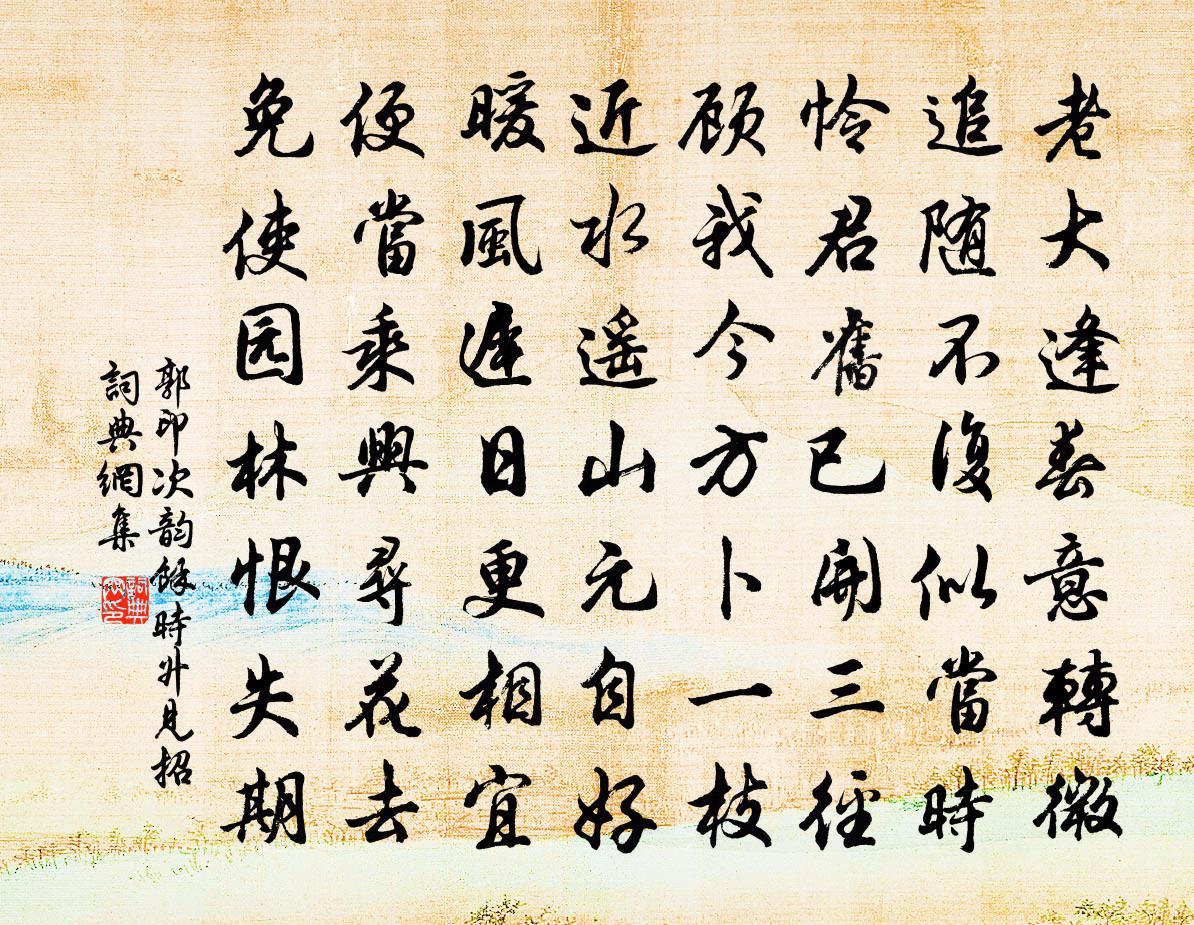 老大逢春意轉微
追随不復似當時
怜君舊已開三徑
顾我今方卜一枝
近水遥山元自好
暖風遲日更相宜
便當乘興尋花去
免使园林恨失期
郭印次韵餘時升见招
詞典網集